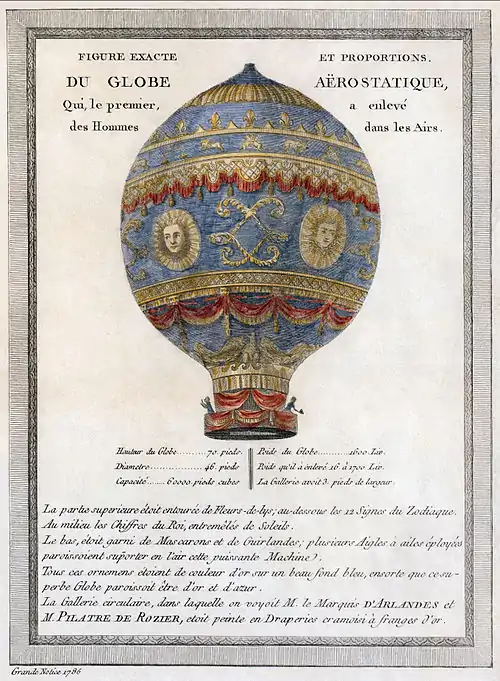 FIGURE EXACTE ET PROPORTIONS.
DU GLOBE AËROSTATIQUE,
Qui, le premier, a enlevé
des Hommes dans les Airs.
Hauteur du Globe..........70. pieds
Diametre..................46. pieds
Capacité......60000. pieds cubes
Poids du Globe..........1600. Liv.
Poids qu'il a enlevé 16 à 1700 Liv.
La Gallerie avoit 3. pieds de largeur.
La partie superieure étoit entourée de Fleurs-de-lys; au-dessous les 12 Signes du Zodiaque.
Au milieu les Chiffres du Roi, entremêlés de Soleils.
Le bas, étoit garni de Mascarons et de Guirlandes; plusieurs Aigles à ailes éployées
paroissoient supórter en l'air cette puissante Machine).
Tous ces ornemens étoient de couleur d'or sur un beau fond bleu, ensorte que ce su-
perbe Globe paroissoit être d'or et d'azur.
La Gallerie circulaire, dans laquelle on voyoit M. le Marquis D'ARLANDES et
M. PILATRE DE ROZIER, etoit peinte en Draperies cramoisi à franges d'or.
Grande Notice 1786